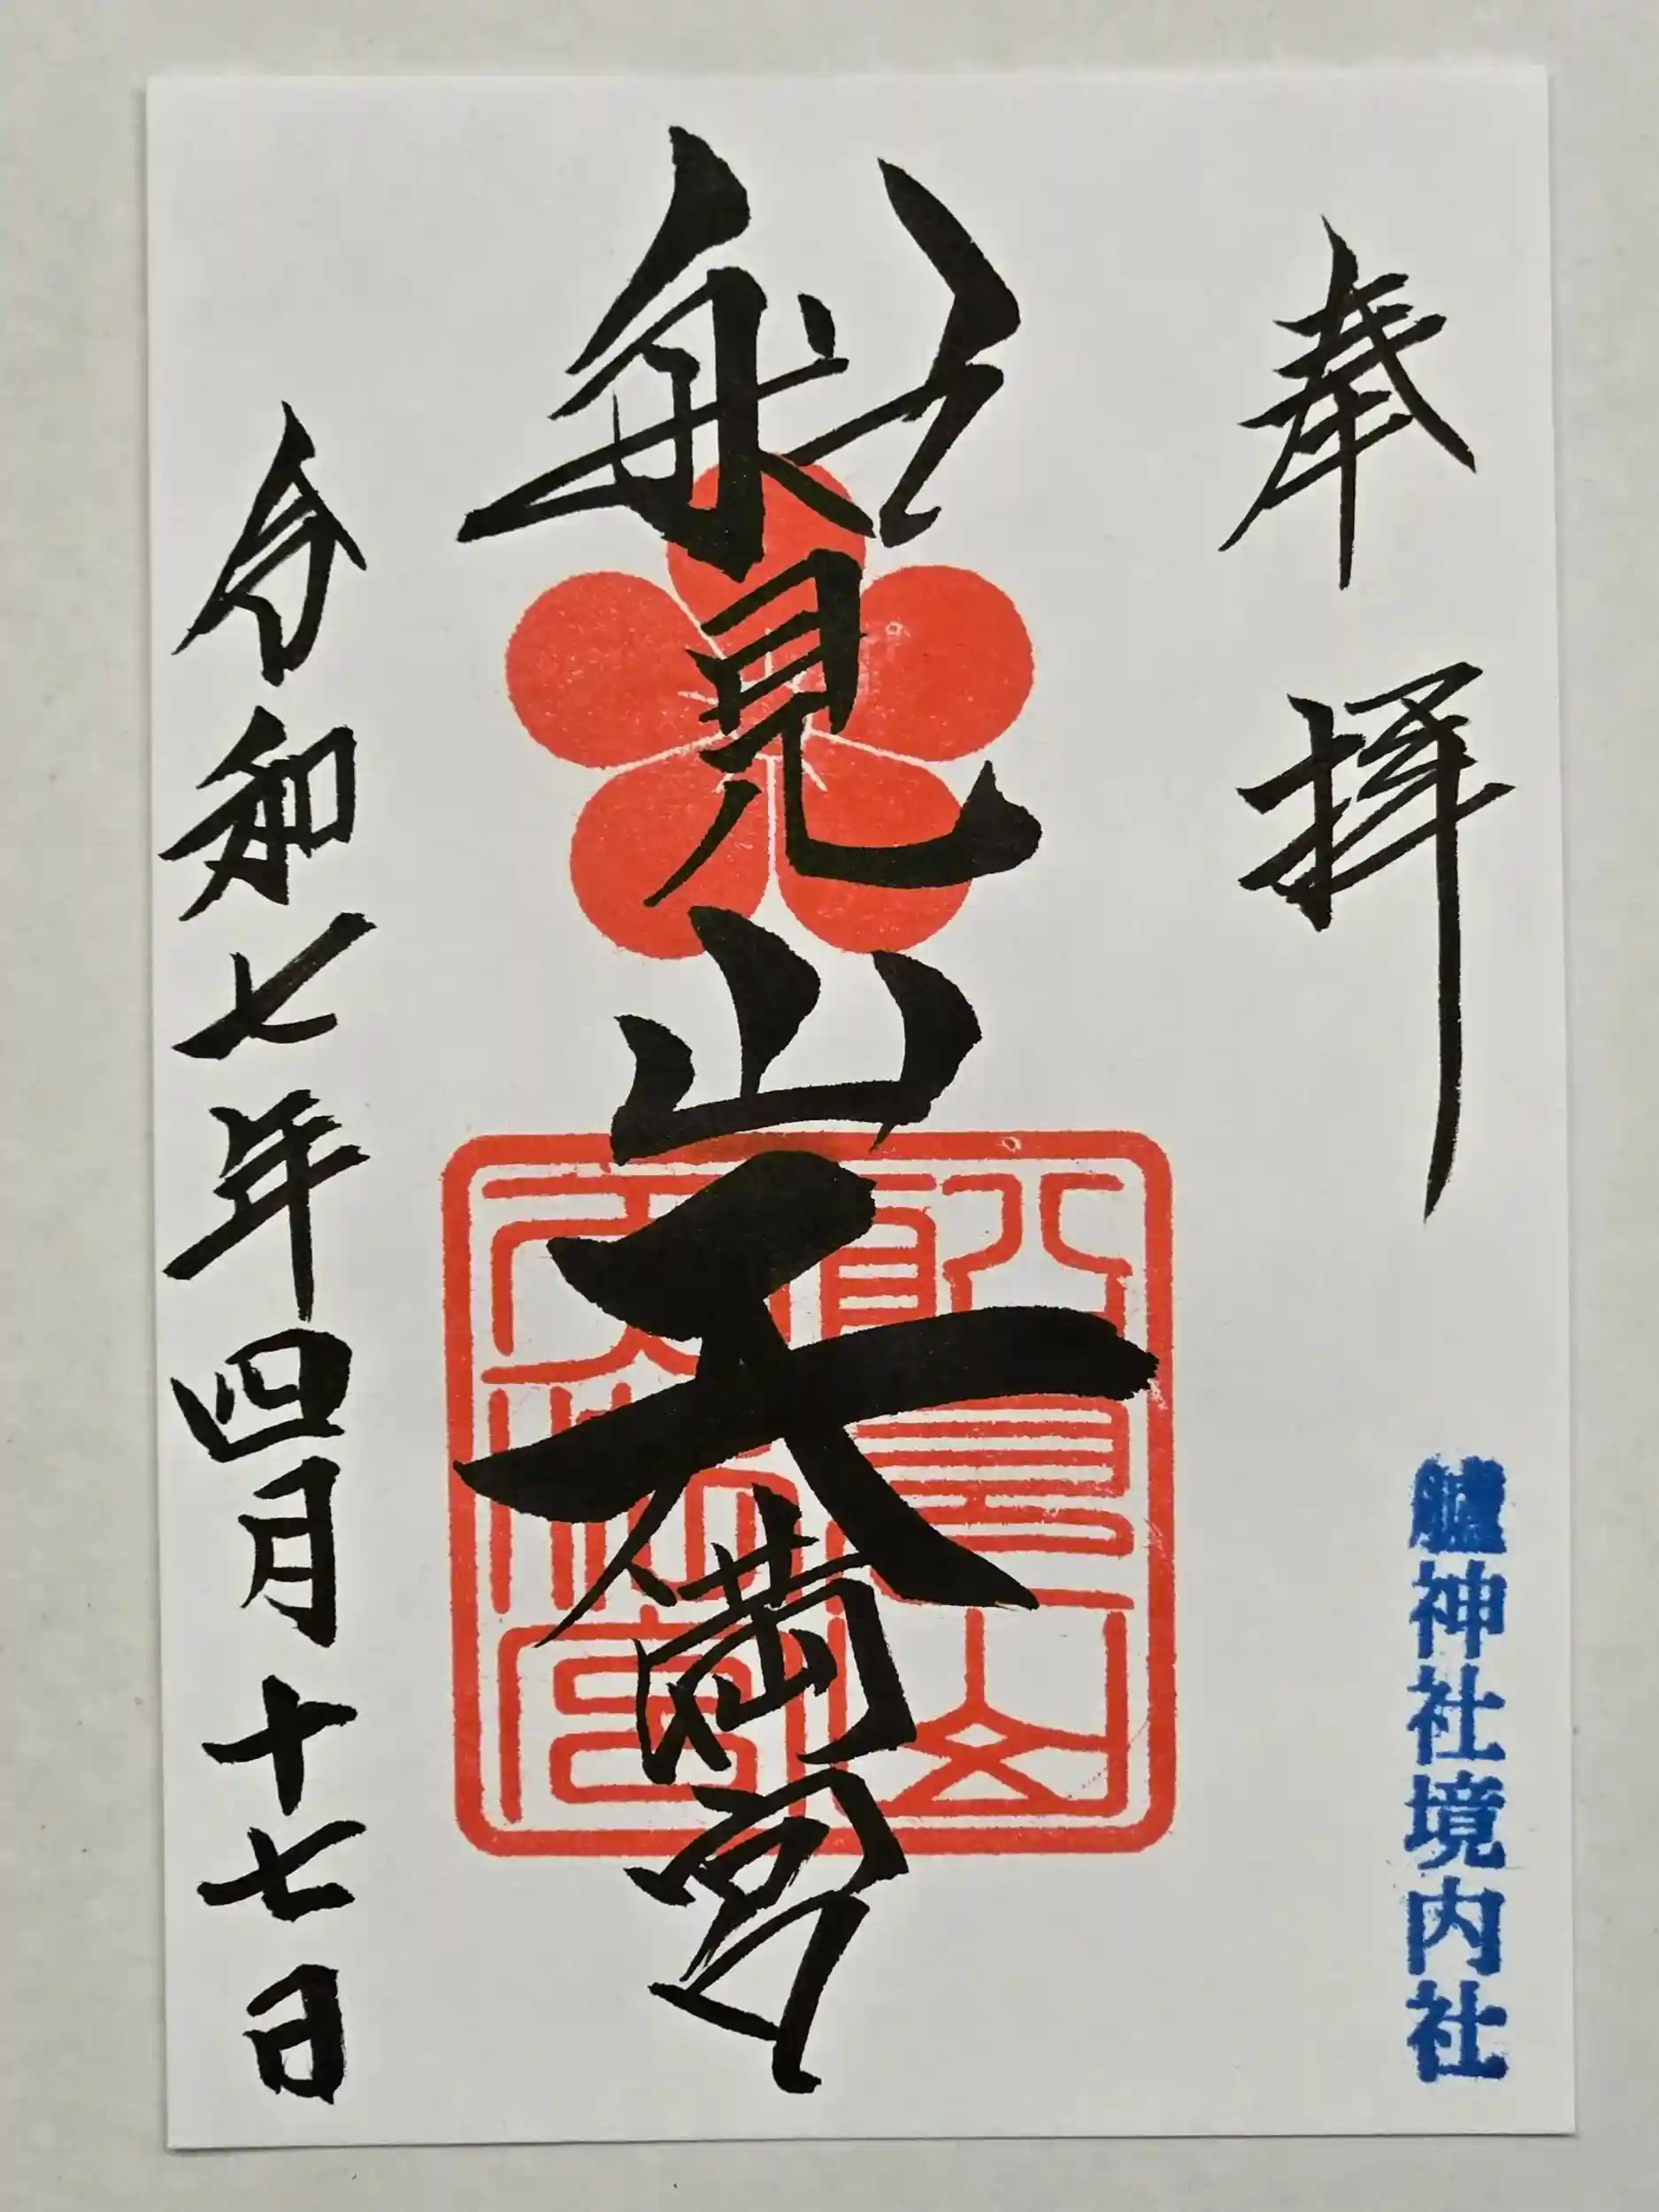 奉拝
艫神社境内社
船見山天満宮
船見山天満宮
令和七年四月十七日